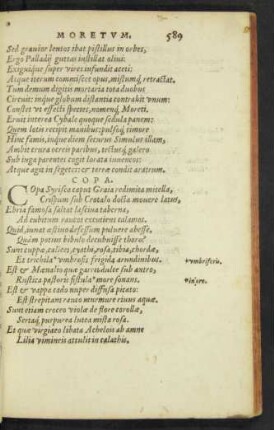 MORETVM. 589
Sed grauior lentos ibat pistillus in orbes,
Ergo Palladij guttas instillat oliui:
Exiguique super vires infundit aceti:
Atque iterum commiscet opus, mistumq́, retractat.
Tum demum digitis mortaria tota duobus
Circuit: inque globum distantia contrahit vnum:
Constet vt effecti species, nomenq́, Moreti.
Eruit interea Cybale quoque sedula panem:
Quem lætis recipit manibus: pulsoq́, timore
Hinc famis, inque diem securus Simulus illam,
Ambit crura ocreis paribus, tectusq́, galero
Sub iuga parentes cogit lorata iuuencos:
Atque agit in segetes: & terræ condit aratrum.
COPA.
COpa Syrisca caput Graia redimita mitella,
Crispum sub Crotalo docta mouere latus,
Ebria famosa saltat lasciua taberna,
Ad cubitum raucos excutiens calamos.
Quid iuuat æstiuo defessum puluere abesse,
Quàm potius bibulo decubuisse thoro?
Sunt cuppæ, calices, cyathi, rosa, tibia, chordæ,
Et trichila vmbrosis frigida arundinibus. vmbriferis.
Est & Mænalio quæ garrit dulce sub antro,
Rustica pastoris fistula more sonans. in ore.
Est & vappa cado nuper diffusa picato:
Est strepitans rauco murmure riuus aquæ.
Sunt etiam croceo violæ de flore corollæ,
Sertaq́, purpurea lutea mista rosa.
Et quæ virgineo libata Achelois ab amne
Lilia vimineis attulit in calathis.